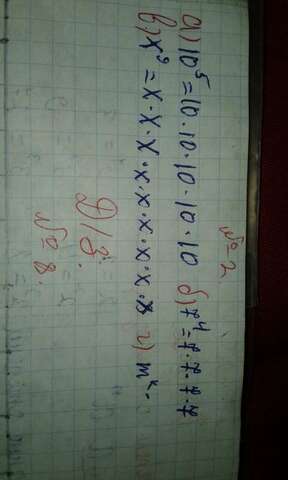 №2
а) 10⁵ = 10 · 10 · 10 · 10 · 10 б) 7⁴ = 7 · 7 · 7 · 7
в) x⁹ = x · x · x · x · x · x · x · x · x г) mⁿ
Д/З.
№8.